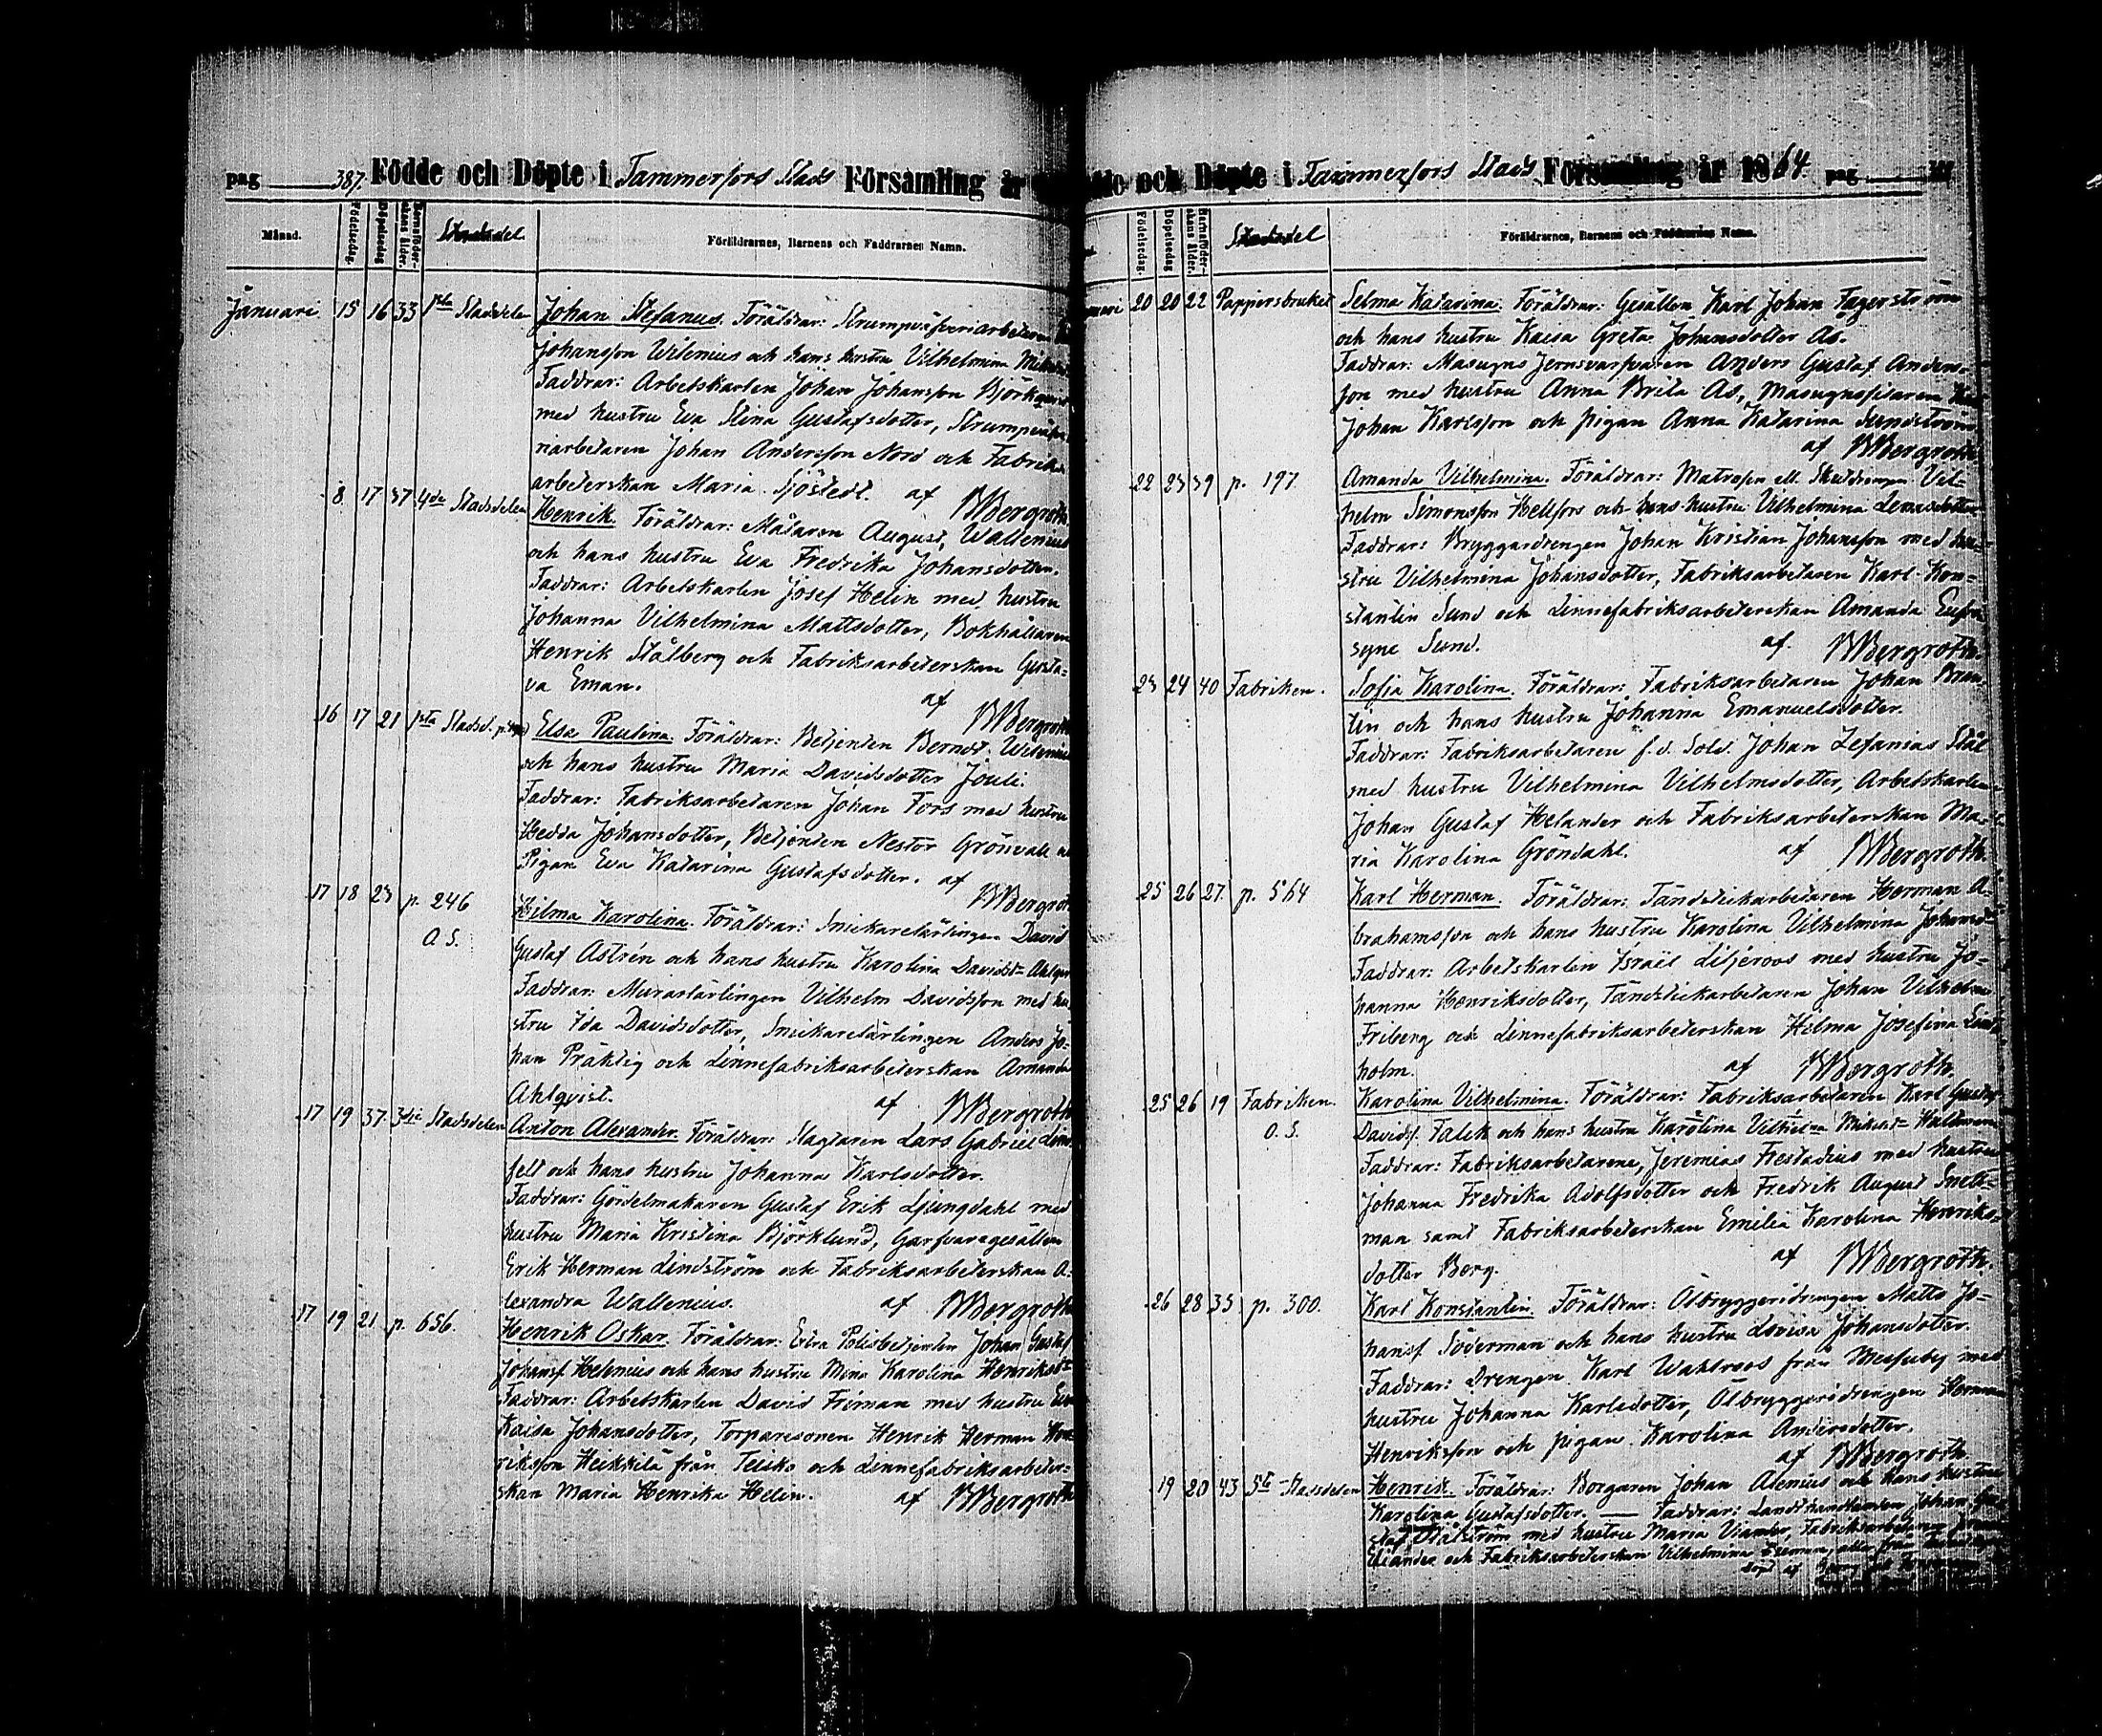 pag 387. Födde och Döpte i Tammerfors Stads Församling år
Månad. Födelsedag. Döpelsedag Barnaföderskans ålder. Stadsdel Föräldrarnes, Barnens och Faddrarnes Namn.
Januari 15 16 33 1sta Stadsdelen Johan Stefanus. Föräldrar: Strumpväfveriarbetaren
Johansson Wilenius och hans hustru Vilhelmina
Faddrar: Arbetskarlen Johan Johansson Björkqvist
med hustru Eva Stina Gustafsdotter,
riarbetaren Johan Andersson Nord och Fabriks
arbeterskan Maria Sjöstedt. af BBergroth
8 17 37 4de Stadsdelen Henrik. Föräldrar: Målaren August Wallenius
och hans hustru Eva Fredrika Johansdotter.
Faddrar: Arbetskarlen Josef Helin med hustru
Johanna Vilhelmina Mattsdotter, Bokhållaren
Henrik Stålberg och Fabriksarbeterskan Gusta-
va Eman. af BBergroth
16 17 21 1sta Stadsd. Elsa Paulina. Föräldrar: Betjenten Berndt Wilenius
och hans hustru Maria Davidsdotter Jouli.
Faddrar: Fabriksarbetaren Johan Fors med hustru
Hedda Johansdotter, Betjenten Nestor Grönvall
Pigan Eva Katarina Gustafsdotter. af BBergroth
17 18 23 p. 246 Hilma Karolina. Föräldrar: Snickarelärlingen David
O. S. Gustaf Astrén och hans hustru Karolina Davidsdr
Faddrar: Murarlärlingen Vilhelm Davidsson med hu
stru Ida Davidsdotter, Snickarelärlingen Anders Jo-
han Präktig och Linnefabriksarbeterskan Amanda
Ahlqvist. af BBergroth
17 19 37 3dje Stadsdelen Anton Alexander. Föräldrar: Slagtaren Lars Gabriel
felt och hans hustru Johanna Karlsdotter.
Faddrar: Gördelmakaren Gustaf Erik Ljungdahl med
hustru Maria Kristina Björklund, Garfvaregesällen
Erik Herman Lindström och Fabriksarbeterskan A-
lexandra Wallenius. af BBergroth
17 19 21 p. 656. Henrik Oskar. Föräldrar: Extra Polisbetjenten Johan Gustaf
Johansf Helenius och hans hustru Mina Karolina Henriksdr
Faddrar: Arbetskarlen David Friman med hustru Eva
Kaisa Johansdotter, Torparesonen Henrik Herman Hen
riksson Heikkilä från Teisko och Linnefabriksarbeter-
skan Maria Henrika Helin. af BBergroth
och Döpte i Tammerfors Stads Församling år 1864. pag 387
Födelsedag. Döpelsedag Barnaföderskans ålder. Stadsdel Föräldrarnes, Barnens och Faddrarnes Namn.
20 20 22 Pappersbruket Selma Katarina. Föräldrar: Gesällen Karl Johan Fagerström
och hans hustru Kaisa Greta Johansdotter As.
Faddrar: Masugns Jernsvarfvaren Anders Gustaf Anders-
son med hustru Anna Brita As,
Johan Karlsson och pigan Anna Katarina Sundström
af BBergroth
22 23 39 p. 197 Amanda Vilhelmina. Föräldrar: Matrosen ell. Skuldrängen Vil-
helm Simonsson Hellfors och hans hustru Vilhelmina
Faddrar: Bryggardrengen Johan Kristian Johansson med hu-
stru Vilhelmina Johansdotter, Fabriksarbetaren Karl Kon-
stantin Sund och Linnefabriksarbeterskan Amanda Eufro
syne Sund. af BBergroth.
23 24 40 Fabriken. Sofia Karolina. Föräldrar: Fabriksarbetaren Johan Bran-
tin och hans hustru Johanna Emanuelsdotter.
Faddrar: Fabriksarbetaren f.d. Sold. Johan Zefanias Stål
med hustru Vilhelmina Vilhelmsdotter, Arbetskarlen
Johan Gustaf Helander och Fabriksarbeterskan Ma-
ria Karolina Gröndahl. af BBergroth.
25 26 27. p. 564 Karl Herman. Föräldrar: Tändstickarbetaren Herman A-
brahamsson och hans hustru Karolina Vilhelmina Johansd
Faddrar: Arbetskarlen Israël Liljeroos med hustru Jo-
hanna Henriksdotter, Tändstickarbetaren Johan Vilhelm
Friberg och Linnefabriksarbeterskan Hilma Josefina
holm. af BBergroth.
25 26 19 Fabriken. Karolina Vilhelmina. Föräldrar: Fabriksarbetaren Karl Gustaf
O. S. Davidsf. Falck och hans hustru Karolina Vilhelma
Faddrar: Fabriksarbetarena, Jeremias Frestadius med hustru
Johanna Fredrika Adolfsdotter och Fredrik August Snell-
man samt Fabriksarbeterskan Emilia Karolina Henriks-
dotter Berg. af BBergroth.
26 28 35 p. 300. Karl Konstantin. Föräldrar: Ölbryggeridrengen Matts Jo-
hansf Söderman och hans hustru Lovisa Johansdotter.
Faddrar: Drengen Karl Wahlroos från Messuby med
hustru Johanna Karlsdotter, Ölbryggeridrengen Herman
Henriksson och pigan Karolina Andersdotter.
af BBergroth
19 20 43 5te Stadsdelen Henrik. Föräldrar: Borgaren Johan Alenius och hans hustru
Karolina Gustafsdotter. — Faddrar: Landthandlanden Johan Gu-
staf Stålström med hustru Maria Viander, Fabriksarbetaren
och Fabriksarbeterskan Vilhelmina